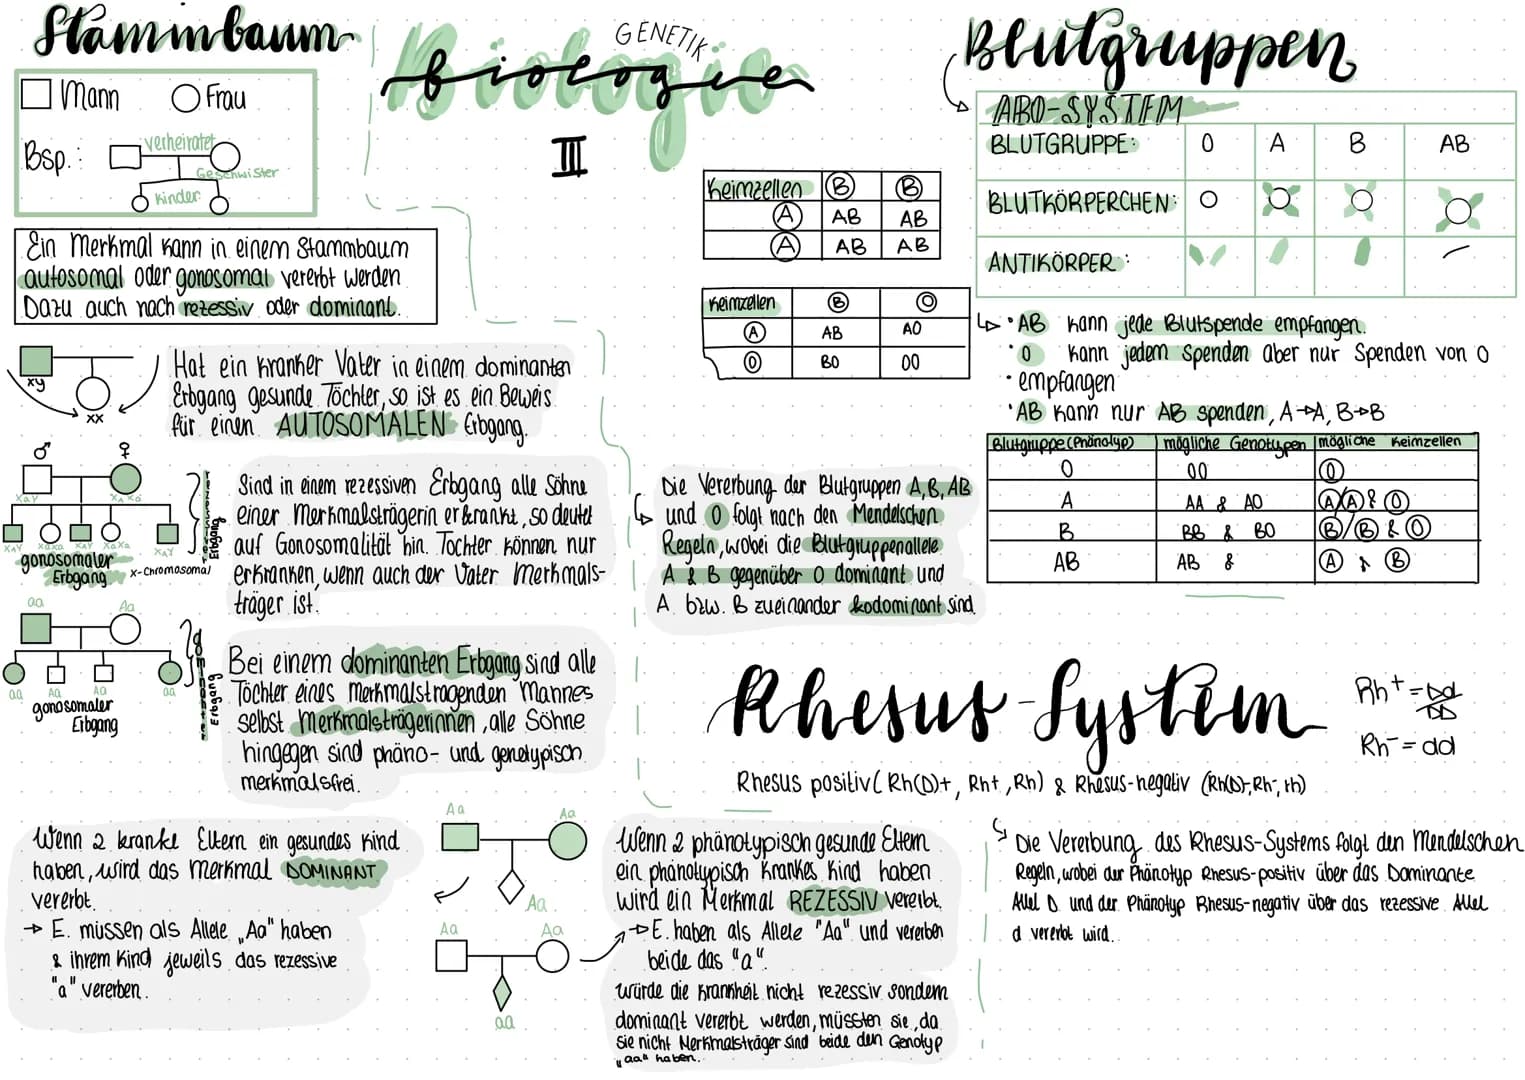 Stammbaum
Mann Frau
Bsp.: verheiratet
Geschwister
Kinder
Ein Merkmal kann in einem Stammbaum
autosomal oder gonosomal vererbt werden
Dazu auch nach rezessiv oder dominant.
xy
xx
Hat ein kranker Vater in einem dominanten
Erbgang gesunde Töchter, so ist es ein Beweis
für einen AUTOSOMALEN Erbgang.
♂ ♀
XaY XAXa
XAY XaXa XAY XaXa XAY
gonosomaler
Erbgang X-Chromosomal
Erbgang
Sind in einem rezessiven Erbgang alle Söhne
einer Merkmalsträgerin erkrankt, so deutet
auf Gonosomalität hin. Töchter können nur
erkranken, wenn auch der Vater Merkmals-
träger ist.
aa Aa
aa Aa Aa aa
gonosomaler
Erbgang
dominanter
Erbgang
Bei einem dominanten Erbgang sind alle
Töchter eines Merkmalstragenden Mannes
selbst Merkmalsträgerinnen, alle Söhne
hingegen sind phäno- und genotypisch
merkmalsfrei.
Wenn 2 kranke Eltern ein gesundes Kind
haben, wird das Merkmal DOMINANT
vererbt.
→ E. müssen als Allele „Aa" haben
& ihrem Kind jeweils das rezessive
"a" vererben.
Aa Aa
Aa
Aa Aa
aa
Wenn 2 phänotypisch gesunde Eltern
ein phänotypisch krankes Kind haben
wird ein Merkmal REZESSIV vererbt.
→ E. haben als Allele "Aa" und vererben
beide das "a".
Würde die Krankheit nicht rezessiv sondern
dominant vererbt werden, müssten sie, da
sie nicht Merkmalsträger sind beide den Genotyp
„aa" haben.
GENETIK
Biologie
III
Keimzellen B B
A AB AB
A AB AB
Keimzellen B O
A AB AO
O BO OO
Die Vererbung der Blutgruppen A, B, AB
und O folgt nach den Mendelschen
Regeln, wobei die Blutgruppenallele
A & B gegenüber O dominant und
A bzw. B zueinander kodominant sind.
Blutgruppen
ABO-SYSTEM
BLUTGRUPPE: O A B AB
BLUTKÖRPERCHEN:
ANTIKÖRPER:
• AB kann jede Blutspende empfangen.
• O kann jedem spenden aber nur Spenden von O
• empfangen
• AB kann nur AB spenden, A→A, B→B
Blutgruppe (Phänotyp) mögliche Genotypen mögliche Keimzellen
O OO O
A AA & AO A/A & O
B BB & BO B/B & O
AB AB & A & B
Rhesus-System
Rh+ = Dd
DD
Rh- = dd
Rhesus positiv (Rh(D)+, Rh+, Rh) & Rhesus-negativ (Rh(D)-, Rh-, rh)
Die Vererbung des Rhesus-Systems folgt den Mendelschen
Regeln, wobei der Phänotyp Rhesus-positiv über das Dominante
Allel D und der Phänotyp Rhesus-negativ über das rezessive Allel
d vererbt wird.